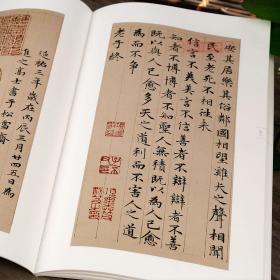 安其居樂其俗鄰國相望雞犬之聲相聞
民至老死不相往来
信言不美美言不信善者不辯辯者不善
知者不博博者不知聖人無積既以為人己愈
有既以與人己愈多天之道利而不害人之道
為而不争
老子終
延祐三年歲在丙辰三月廿四五日為
進之高士書于松雪齋